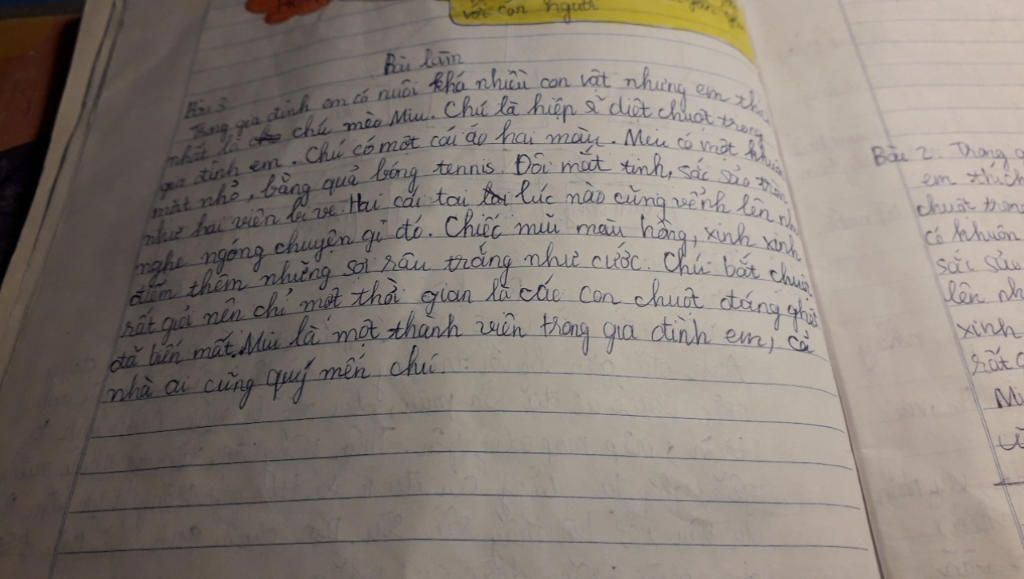 với con người
Bài làm
Bài 3
Trong gia đình em có nuôi khá nhiều con vật nhưng em
nhất là chú mèo Miu. Chú là hiệp sĩ diệt chuột trong
gia đình em. Chú có một cái áo hai màu. Meu có một khuôn
mặt nhỏ, bằng quả bóng tennis. Đôi mắt tinh, sắc sảo
như hai viên bi ve. Hai cái tai lúc nào cũng vểnh lên
nghe ngóng chuyện gì đó. Chiếc mũi màu hồng, xinh xinh
điểm thêm những sợi râu trắng như cước. Chú bắt chuột
rất giỏi nên chỉ một thời gian là các con chuột đáng ghét
đã biến mất. Miu là một thành viên trong gia đình em, cả
nhà ai cũng quý mến chú.
Bài 2: Trong
em thích
chuột trong
có khuôn
sắc sảo
lên
xinh
rất